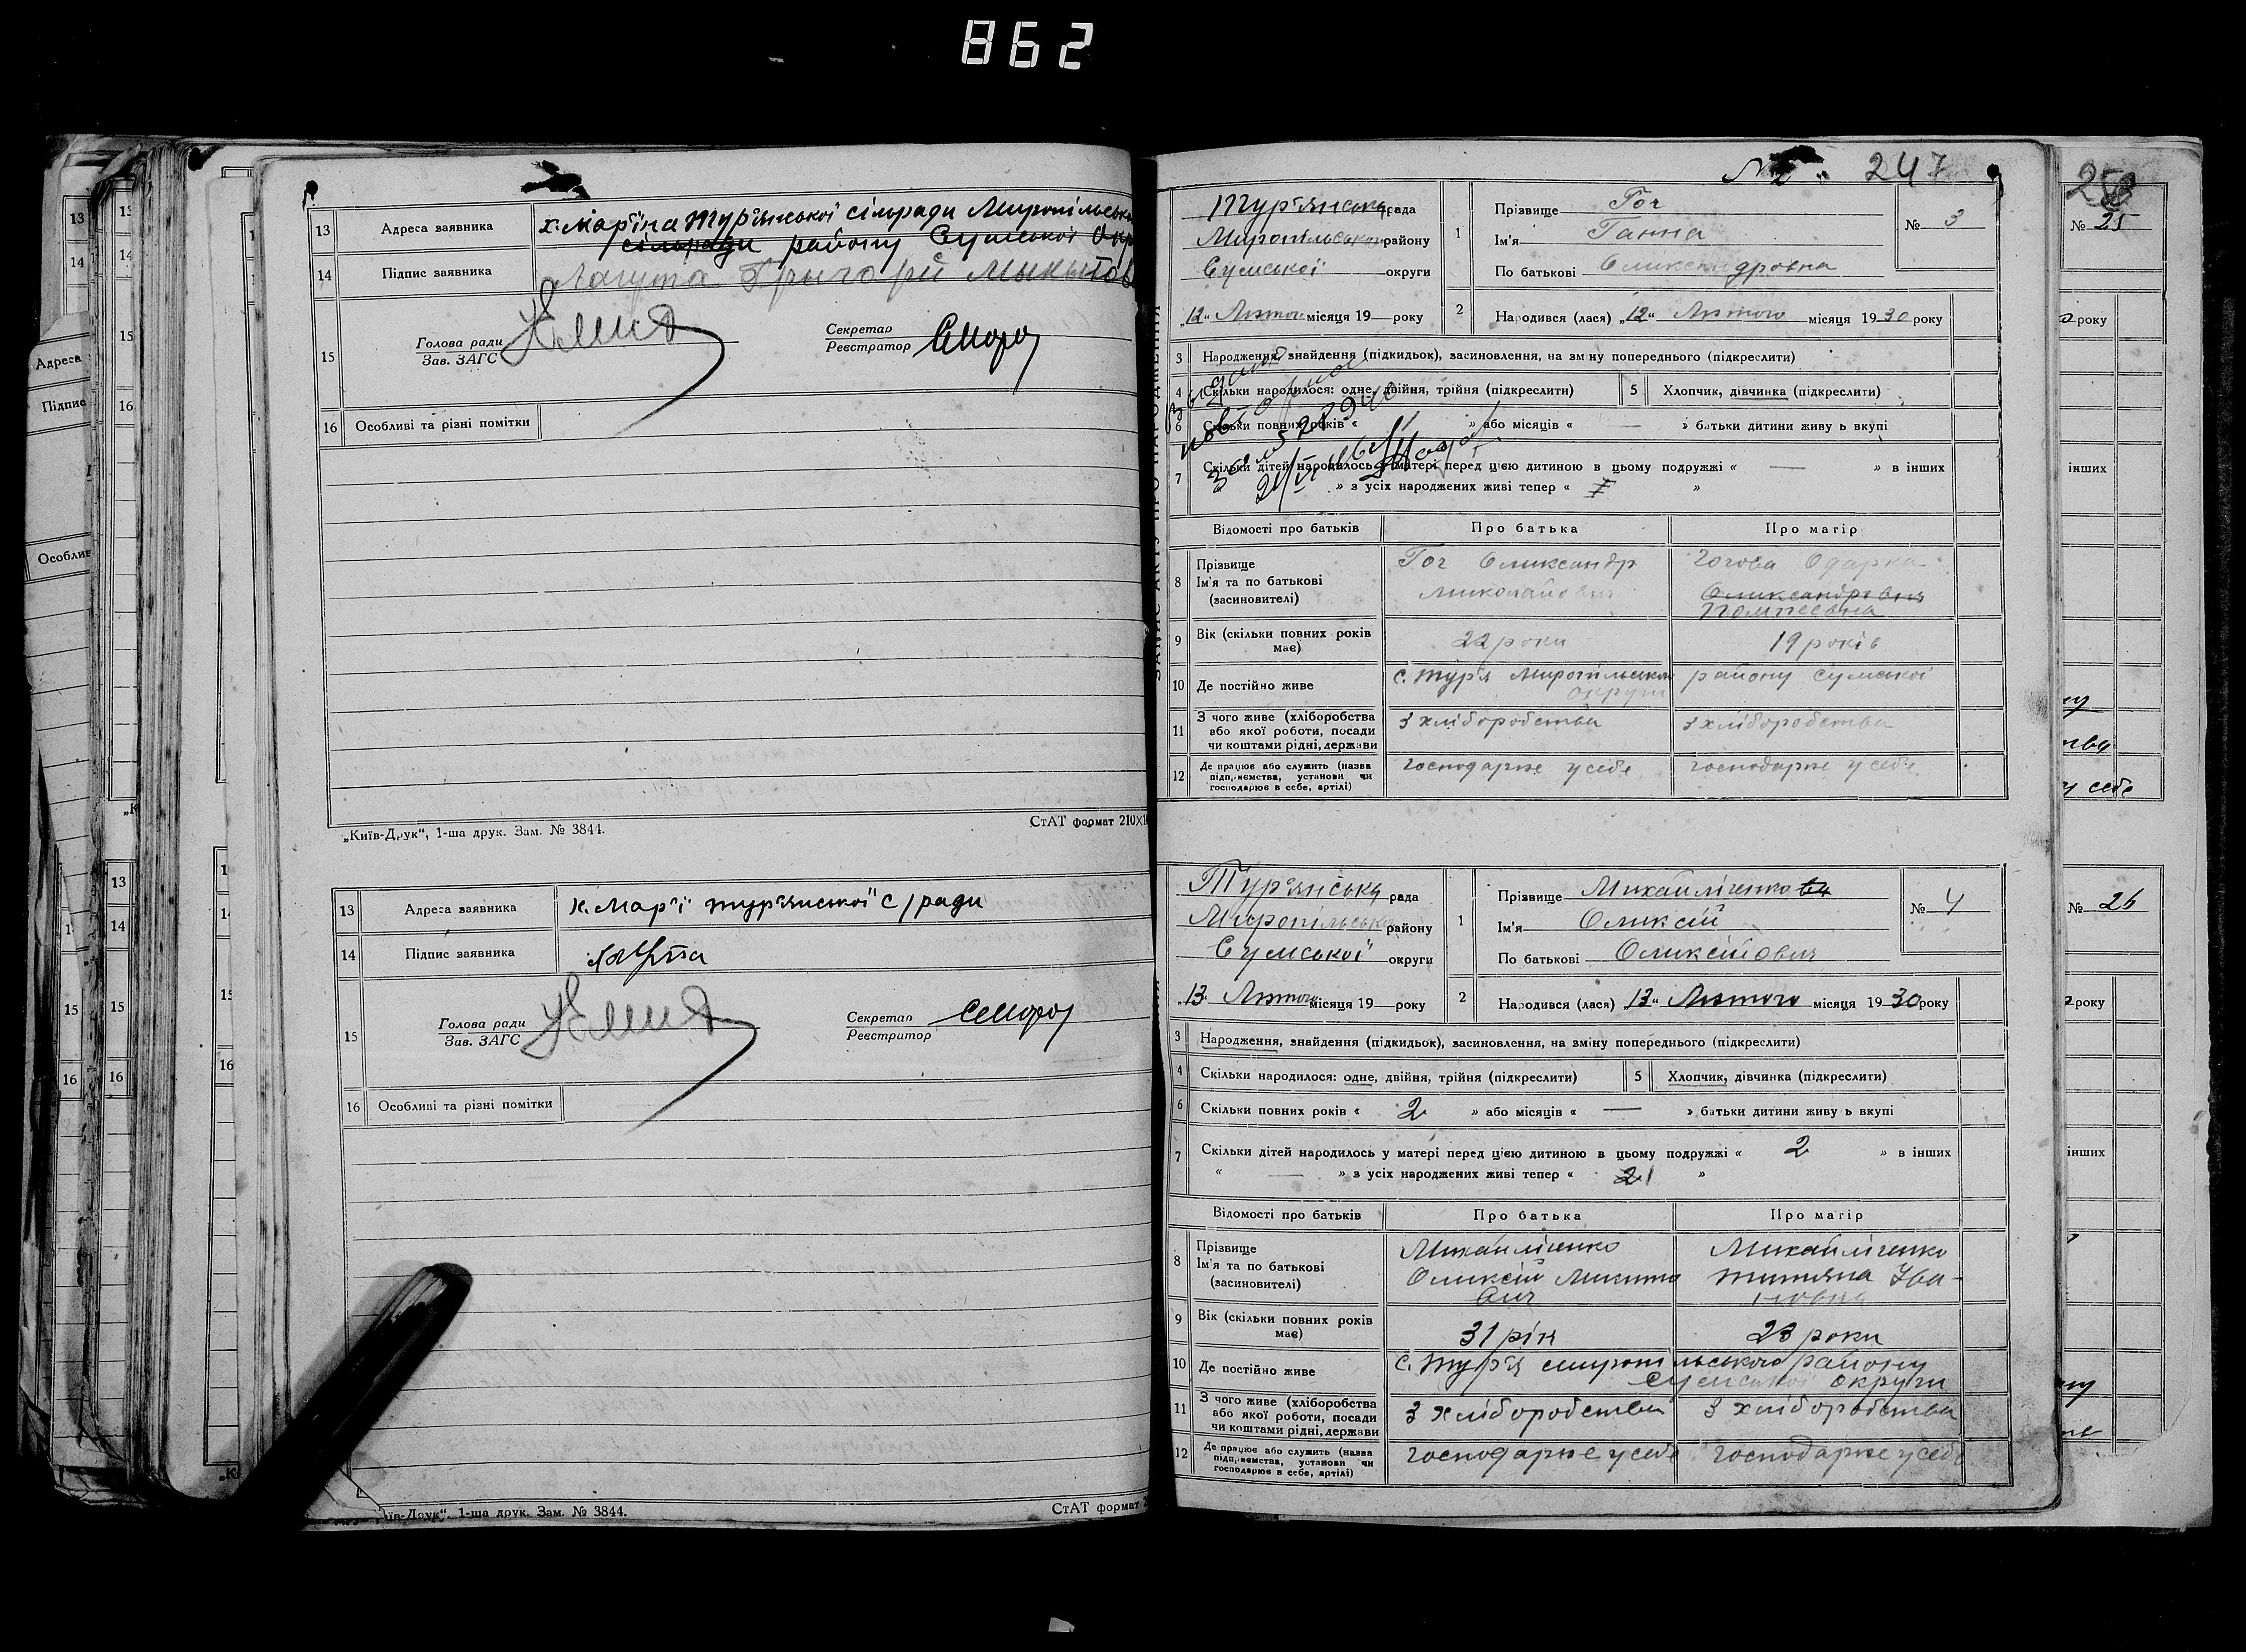 862
13 Адреса заявника х. Мар'їна Тур'янської сільради Миропільсько
сільради району Сумської Окр
14 Підпис заявника Григорій
15 Голова ради
Зав. ЗАГС
Секретар
Реєстратор
16 Особливі та різні помітки
„Київ-Друк“, 1-ша друк. Зам. № 3844.
СтАТ формат 210х1
13 Адреса заявника х. Мар'ї тур'янської с/ради
14 Підпис заявника
15 Голова ради
Зав. ЗАГС
Секретар
Реєстратор
16 Особливі та різні помітки
їв-Друк“, 1-ша друк. Зам. № 3844.
СтАТ формат 2
№ 247
Тур'янська рада
Миропільського району
Сумської округи
„12“ Лютого місяця 19— року
1 Прізвище Гог
Ім'я Ганна
По батькові Оликсандровна
№ 3
2 Народився (лася) „12“ Лютого місяця 1930 року
3 Народження, знайдення (підкидьок), засиновлення, на зміну попереднього (підкреслити)
4 Скільки народилося: одне, двійня, трійня (підкреслити)
5 Хлопчик, дівчинка (підкреслити)
6 Скільки повних років « » або місяців « — » батьки дитини живуть вкупі
7 Скільки дітей народилось у матері перед цією дитиною в цьому подружжі « — » в інших
» з усіх народжених живі тепер « »
Відомості про батьків Про батька Про матір
8 Прізвище
Ім'я та по батькові
(засиновителі)
Гог Оликсандр
Миколайович
Гогова Одарка
Оликсандровна
Помпеевна
9 Вік (скільки повних років має) 22 роки 19 років
10 Де постійно живе с. Тур'я Миропільського району Сумської
округи
11 З чого живе (хліборобства
або якої роботи, посади
чи коштами рідні, держави
З хліборобства З хліборобства
12 Де працює або служить (назва
підприємства, установи чи
господарює в себе, артілі)
господарює у себе господарює у себе
Тур'янська рада
Миропільського району
Сумської округи
„13“ Лютого місяця 19— року
1 Прізвище Михайліченко
Ім'я Оликсій
По батькові Оликсійович
№ 4
2 Народився (лася) „13“ Лютого місяця 1930 року
3 Народження, знайдення (підкидьок), засиновлення, на зміну попереднього (підкреслити)
4 Скільки народилося: одне, двійня, трійня (підкреслити)
5 Хлопчик, дівчинка (підкреслити)
6 Скільки повних років « 2 » або місяців « — » батьки дитини живуть вкупі
7 Скільки дітей народилось у матері перед цією дитиною в цьому подружжі « 2 » в інших
« — » з усіх народжених живі тепер « 21 »
Відомості про батьків Про батька Про матір
8 Прізвище
Ім'я та по батькові
(засиновителі)
Михайліченко
Оликсій Микито
вич
Михайліченко
Титяна Іва-
новна
9 Вік (скільки повних років має) 31 рік 23 роки
10 Де постійно живе с. Тур'я миропільського району
Сумської округи
11 З чого живе (хліборобства
або якої роботи, посади
чи коштами рідні, держави
З хліборобства З хліборобства
12 Де працює або служить (назва
підприємства, установи чи
господарює в себе, артілі)
господарює у себе господарює у себе
№ 25
року
інших
у себе
№ 26
року
інших